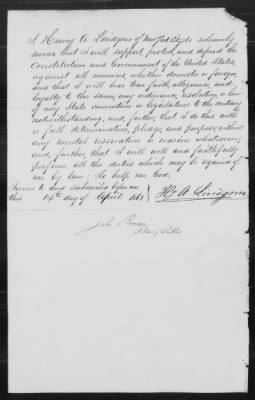 I Henry A Lindgren of New York City do solemnly
swear that I will support, protect, and defend the
Constitution and Government of the United States,
against all enemies, whether domestic or foreign,
and that I will bear true faith, allegiance, and
loyalty to the same, any ordinance, resolution or law
of any State convention or legislature to the contrary
notwithstanding; and, further, that I do this with
a full determination, pledge, and purpose, without
any mental reservation or evasion whatsoever;
and, further, that I will well and faithfully
perform all the duties which may be required of
me by law: So help me God.
Sworn to and subscribed before me
this 14th day of April
John
Notary Public